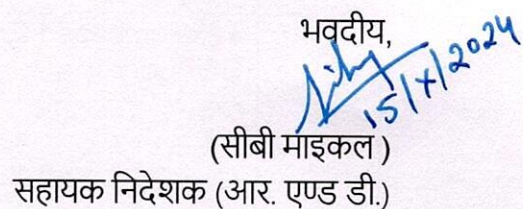 भवदीय,
15/X/2024
(सीबी माइकल )
सहायक निदेशक (आर. एण्ड डी.)